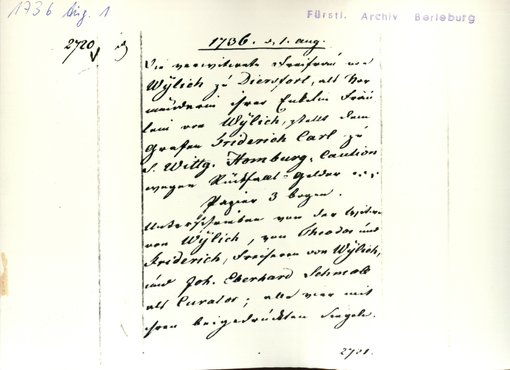 1736 Aug. 1
Fürstl. Archiv Berleburg
2720
1736. d. 1. aug.
Die verwittwete Freifrau von
Wÿlich zu Diersfort, als Vor
münderin ihrer Enkelin Fräu
lein von Wÿlich, stellt dem
Grafen Friderich Carl zu
S. Wittg. Homburg, Caution
wegen Rückfall-Gelder
Papier 3 bogen.
Unterschrieben von der Wittwe
von Wÿlich, von Theodor und
Friderich, Freiherrn von Wÿlich,
und Joh. Eberhard Schmoll
als Curator; alle vier mit
ihren beigedrückten Siegeln.
2721.